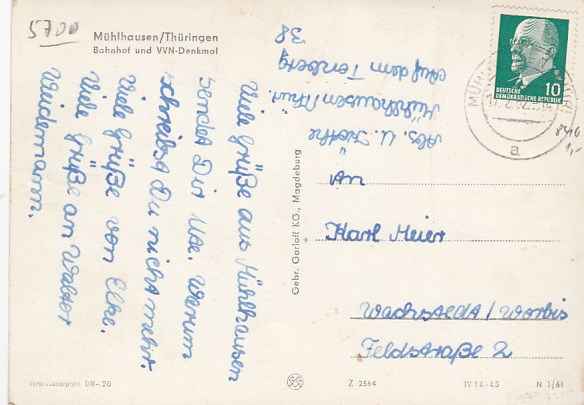 5700
Mühlhausen/Thüringen
Bahnhof und VVN-Denkmal
Viele Grüße aus Mühlhausen
sendet Dir Uze. Warum
schreibst Du nicht mehr.
Viele Grüße von Elke.
Viele Grüße an Walter
Weidemann.
Abs. U. Köthe
Mühlhausen/Thür.
Auf dem Tonberg
38
DEUTSCHE
DEMOKRATISCHE REPUBLIK
10
a
8416
1,-
An
Karl Meier
Wachstedt/Worbis
Feldstraße 2
Gebr. Garloff KG., Magdeburg
Verbraucherpreis DM -.20
Z 2564
IV-14-45
N 1/61